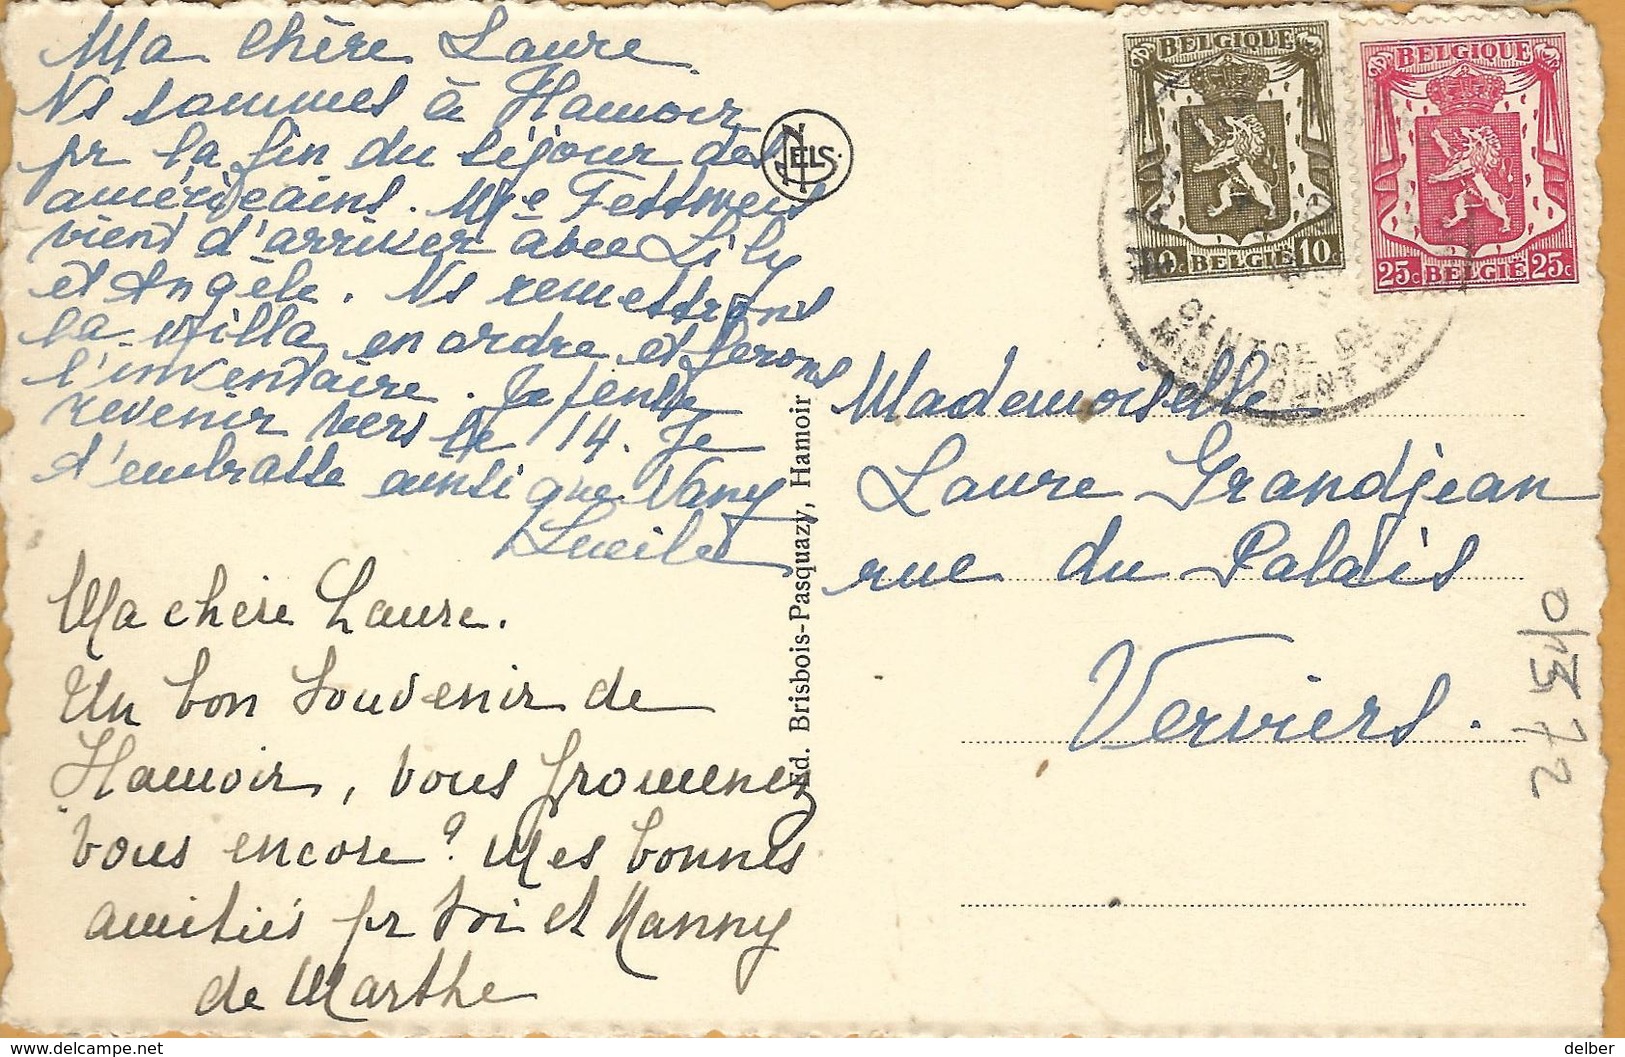 Ma chère Laure
Ns sommes à Hamoir
pr la fin du séjour des
américains. Me Fettweis
vient d'arriver avec Lily
et Angèle. Ns remettrons
la villa en ordre et ferons
l'inventaire. Je pense
revenir vers le 14. Je
t'embrasse ainsi que Nany
Lucile
Ma chère Laure.
Un bon souvenir de
Hamoir, vous promenez
vous encore? Mes bonnes
amitiés pr toi et Nanny
de Marthe
NELS
Ed. Brisbois-Pasquazy, Hamoir
BELGIQUE
10c BELGIE 10c
BELGIQUE
25c BELGIË 25c
CENTRE DE
Mademoiselle
Laure Grandjean
rue du Palais
Verviers.
0/1372
delcampe.net
delber